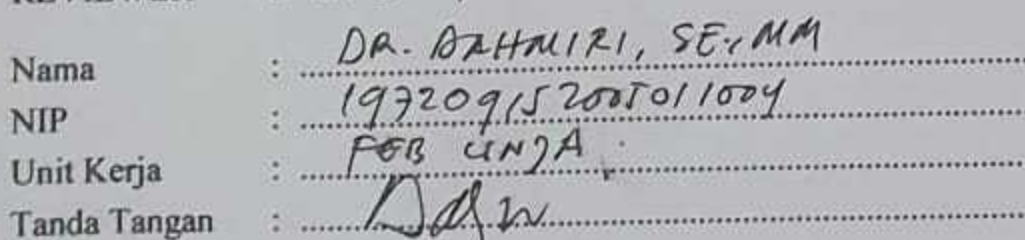 Nama : DR. DAHMIRI, SE., MM
NIP : 197209152005011004
Unit Kerja : FEB UNJA
Tanda Tangan :